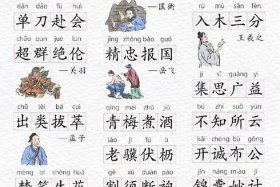 dān dāo fù huì
单刀赴会
chāo qún jué lún
超群绝伦
—关羽
chū lèi bá cuì
出类拔萃
—孟子
—匡衡
jīng zhōng bào guó
精忠报国
—岳飞
qīng méi zhǔ jiǔ
青梅煮酒
lǎo jì fú lì
老骥伏枥
rù mù sān fēn
入木三分
王羲之
jí sī guǎng yì
集思广益
bù zhī suǒ yún
不知所云
kāi chéng bù gōng
开诚布公